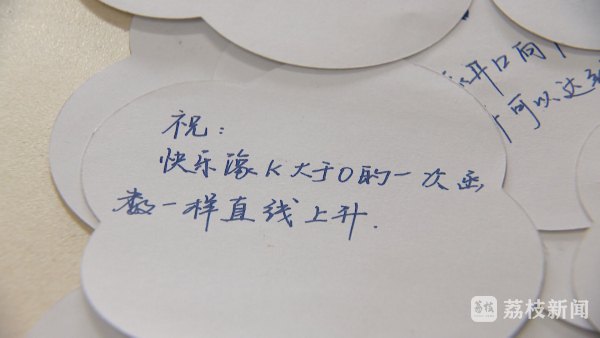 祝：
快乐像K大于0的一次函
数一样直线上升.
开口向
可以达到
荔枝
荔枝新闻